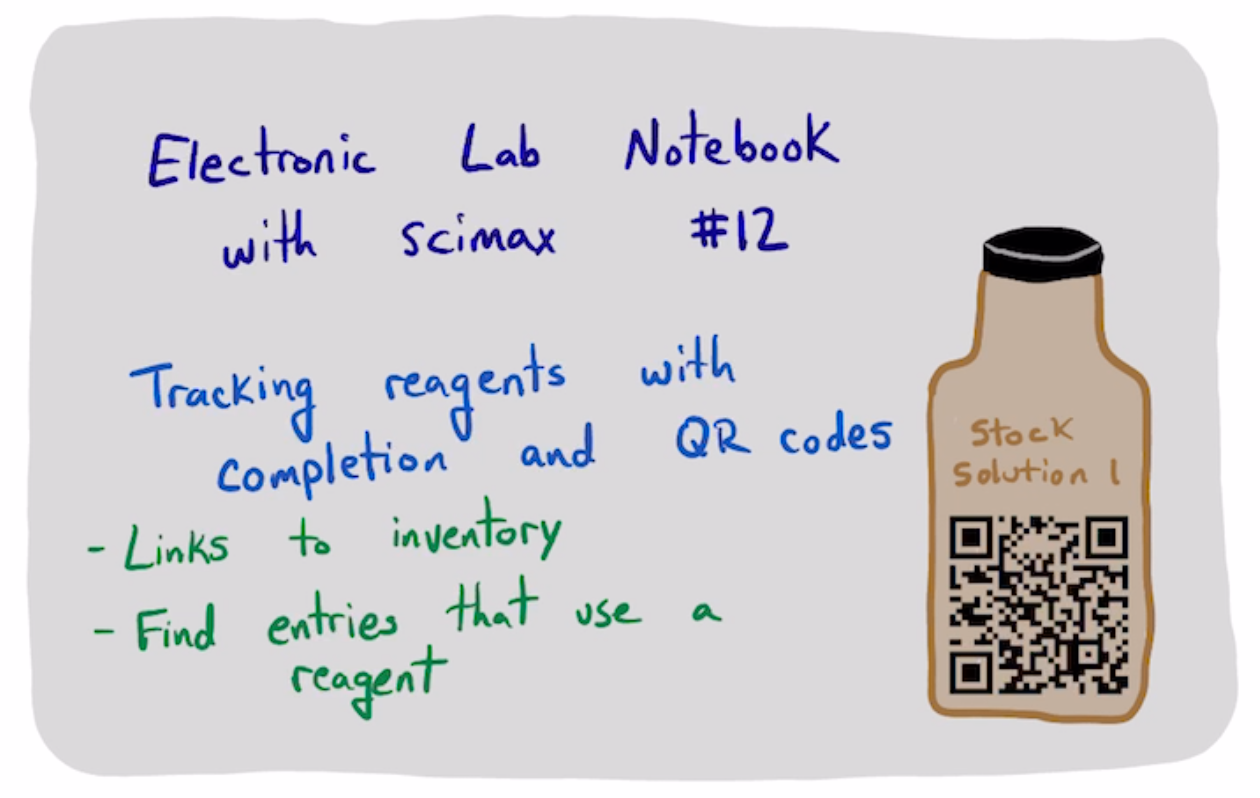 Electronic Lab Notebook
with scimax #12
Tracking reagents with
completion and QR codes
- Links to inventory
- Find entries that use a
reagent
Stock
Solution 1